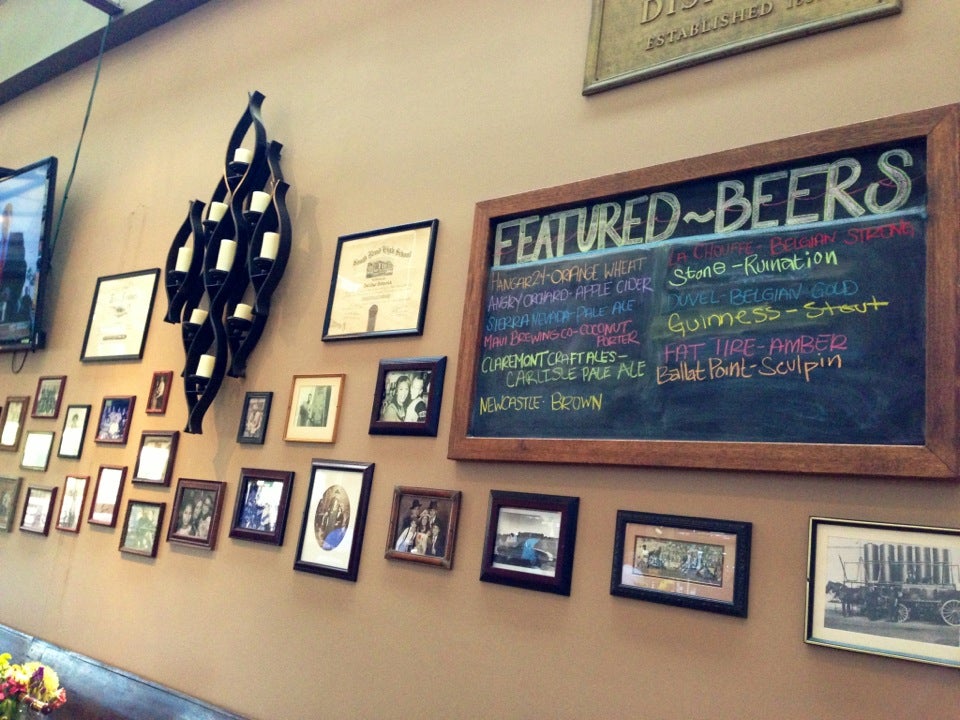 DIS
ESTABLISHED
South Bend High School
FEATURED~BEERS
HANGAR24-ORANGE WHEAT
ANGRY ORCHARD-APPLE CIDER
SIERRA NEVADA-PALE ALE
MAUI BREWING CO-COCONUT
PORTER
CLAREMONT CRAFT ALES-
CARLISLE PALE ALE
NEWCASTLE-BROWN
LA CHOUFFE-BELGIAN STRONG
Stone-Ruination
DUVEL-BELGIAN GOLD
Guinness-Stout
FAT TIRE-AMBER
Ballat Point-Sculpin